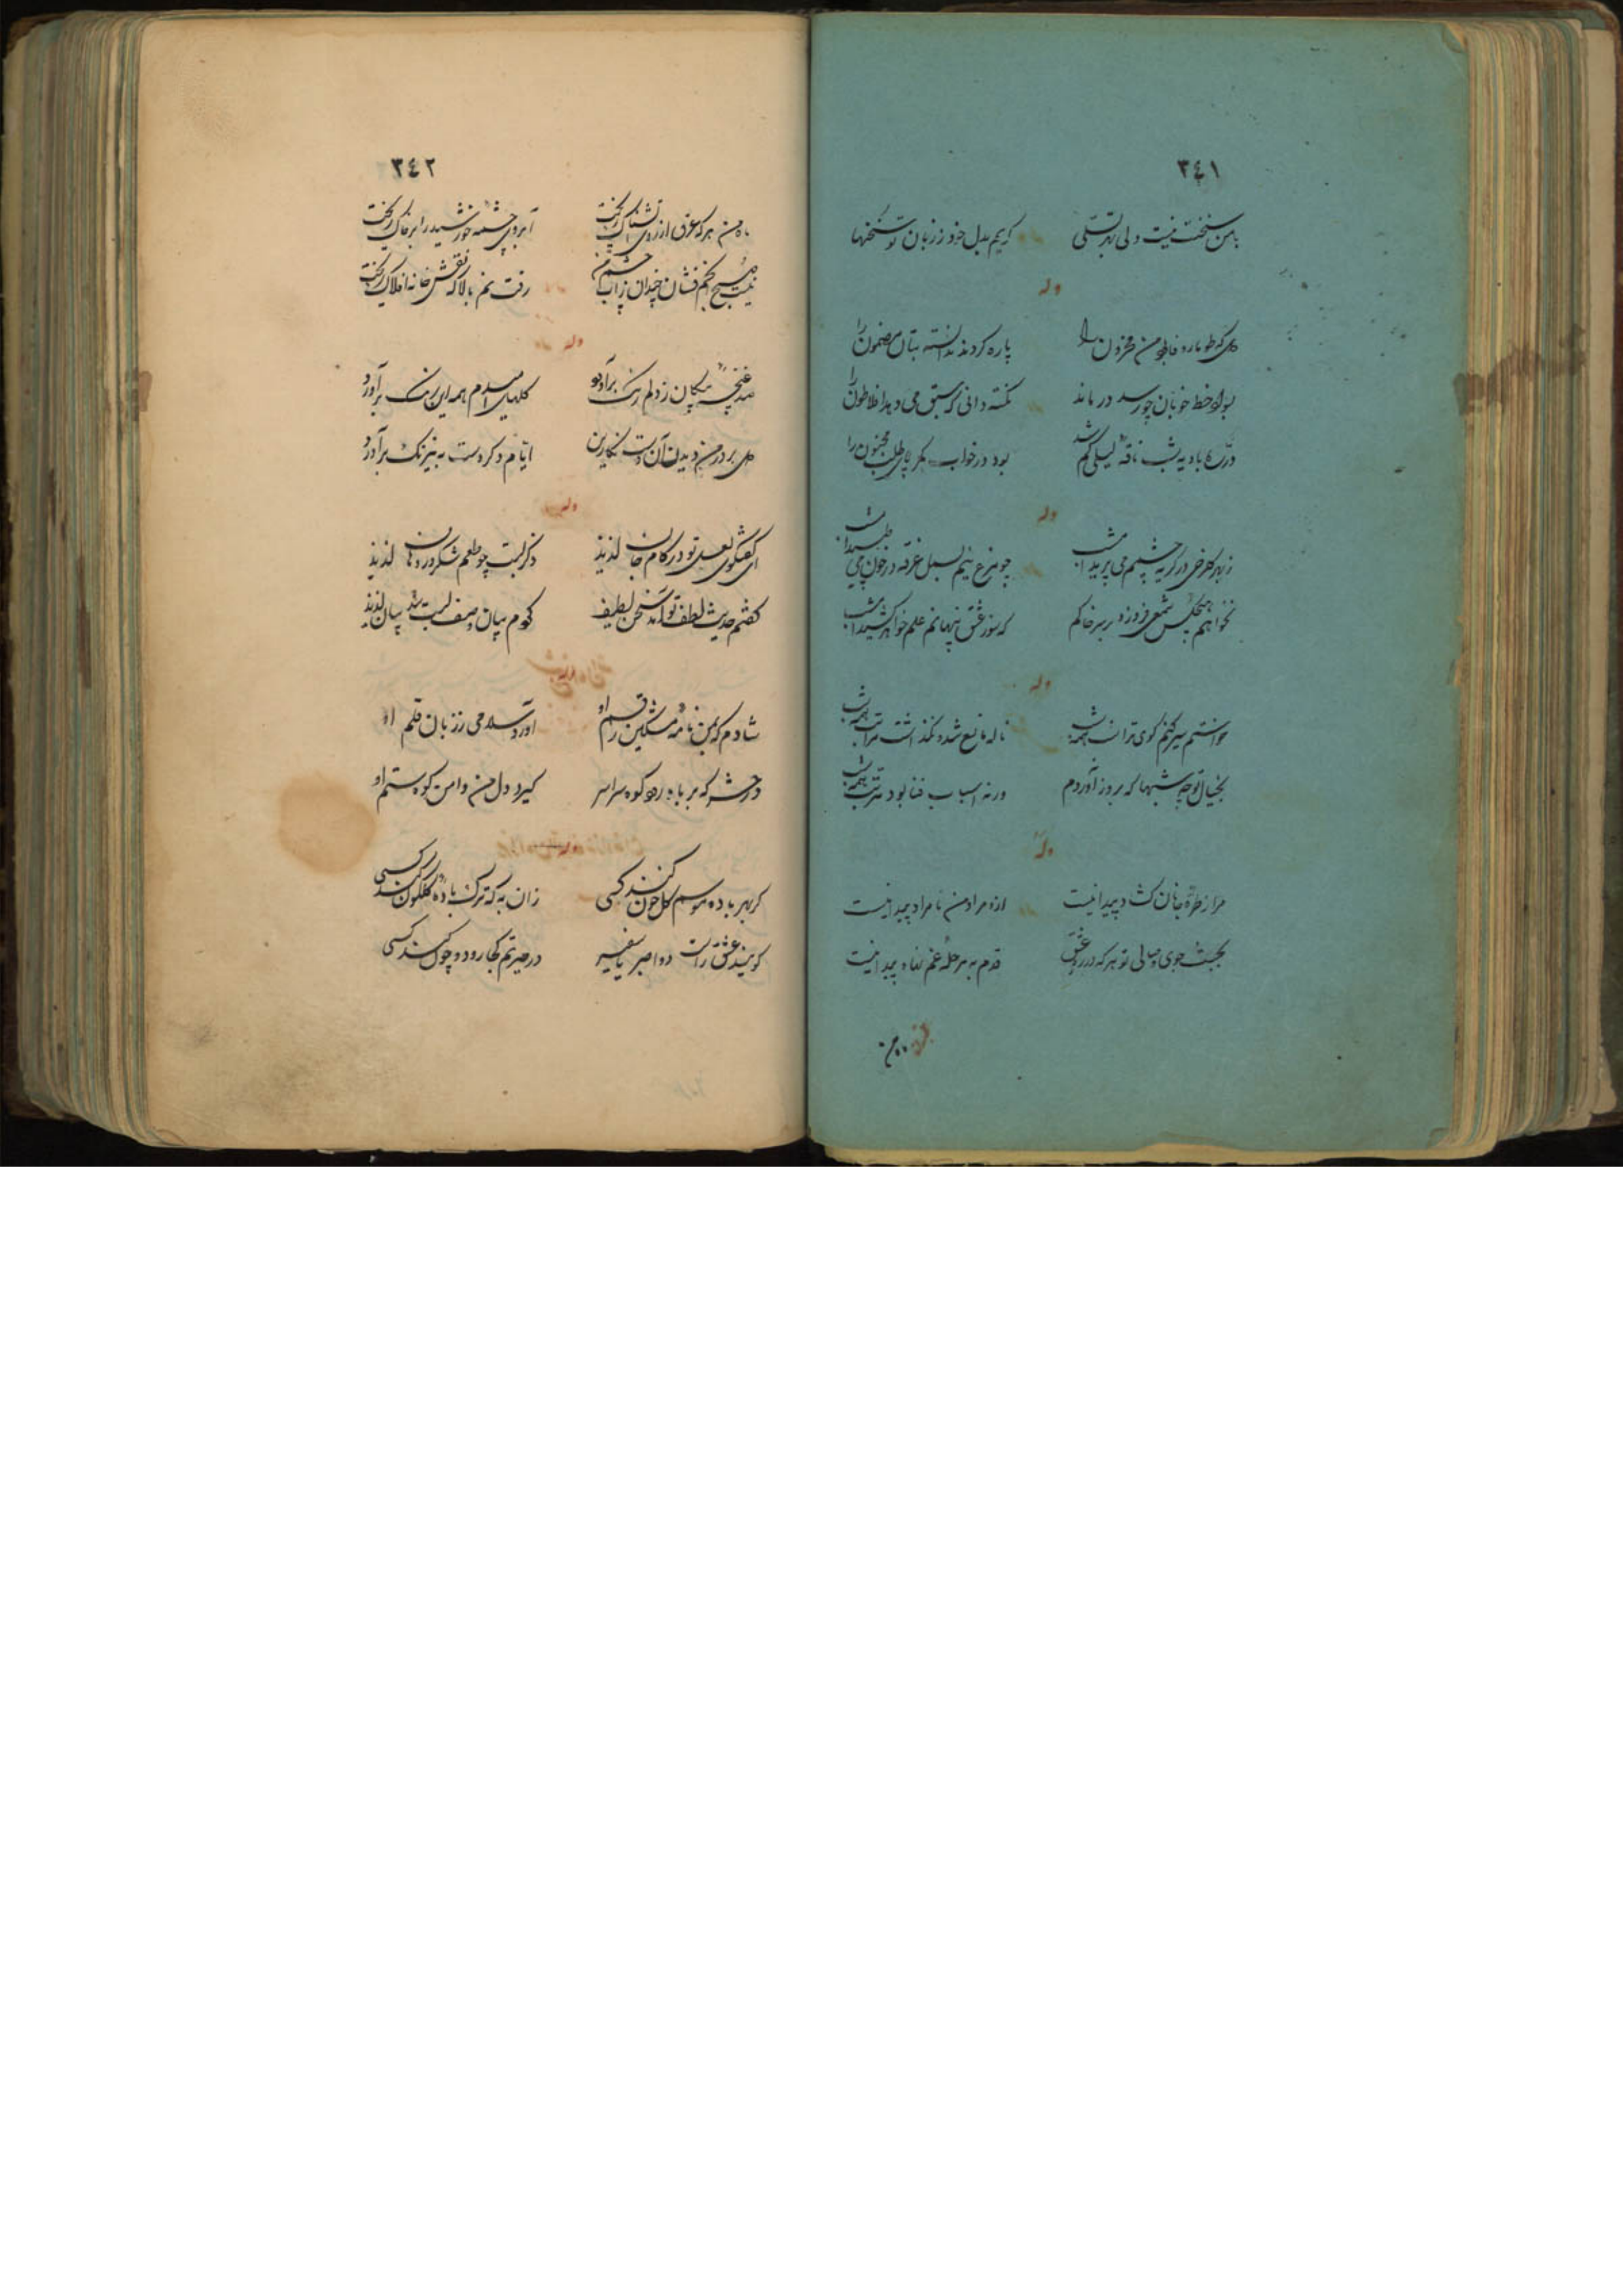 ٣٤١
با من سخنت نیست ولی بهر تسلی گویم بدل خود ز زبان تو سخنها
وله
که طومار وفا من محزون را پاره کردند ندانسته بتان مضمون را
خط خوبان چو رسد درماند نکته دانی که سبق می دهد افلاطون را
در ره بادیه شب ناقه لیلی گم شد بود در خواب مگر طلب مجنون را
وله
ز بهر گلرخی در گریه چشمم می پرید امشب چو مرغ نیم بسمل غرقه در خون می طپید امشب
نخواهم هیچکس شمعی فروزد بر سر خاکم که سوز عشق پنهانم علم خواهد کشید امشب
وله
خواستم سیر کنم کوی ترا شب همه شب ناله مانع شد و نگذاشت مرا شب همه شب
بخیال تو چه شبها که بروز آوردم ورنه اسباب فنا بود شب همه شب
وله
مرا ز طره جانان گشاد پیدا نیست ازو مراد من نامراد پیدا نیست
بجست جوی وصالی تو هر که در ره عشق قدم به مرحله غم نهاد پیدا نیست
ماه من
٣٤٢
ماه من هر که عرق از روی تشناک ریخت آبروی چشمه خورشید را بر خاک ریخت
نیست هیچ انجم فشان چندان ز آب چشم من رفت نم بالا که نقش خانه افلاک ریخت
وله
صد غنچه پیکان ز دلم رنگ برآورد گلهای امیدم همه این رنگ برآورد
بر در من دیدن آن دست نگارین ایام دگر دست به نیرنگ برآورد
وله
ای گفتگوی لعل تو در کام جان لذیذ ذکر لبت چو طعم شکر در دهان لذیذ
گفتم حدیث لطف تو آمد سخن لطیف کردم بیان وصف لبت شد بیان لذیذ
شادم که بمن نامه مشکین رقم او آورد سلامی ز زبان قلم او
در حشر که بر باد رود کوه سراسر گیرد دل من دامن کوه ستم او
گر بهر باده موسم گل خون کند کسی زان به که ترک باده گلگون کند کسی
گویند عشق راست دوا صبر یا سفر در حیرتم کجا رود و چون کند کسی